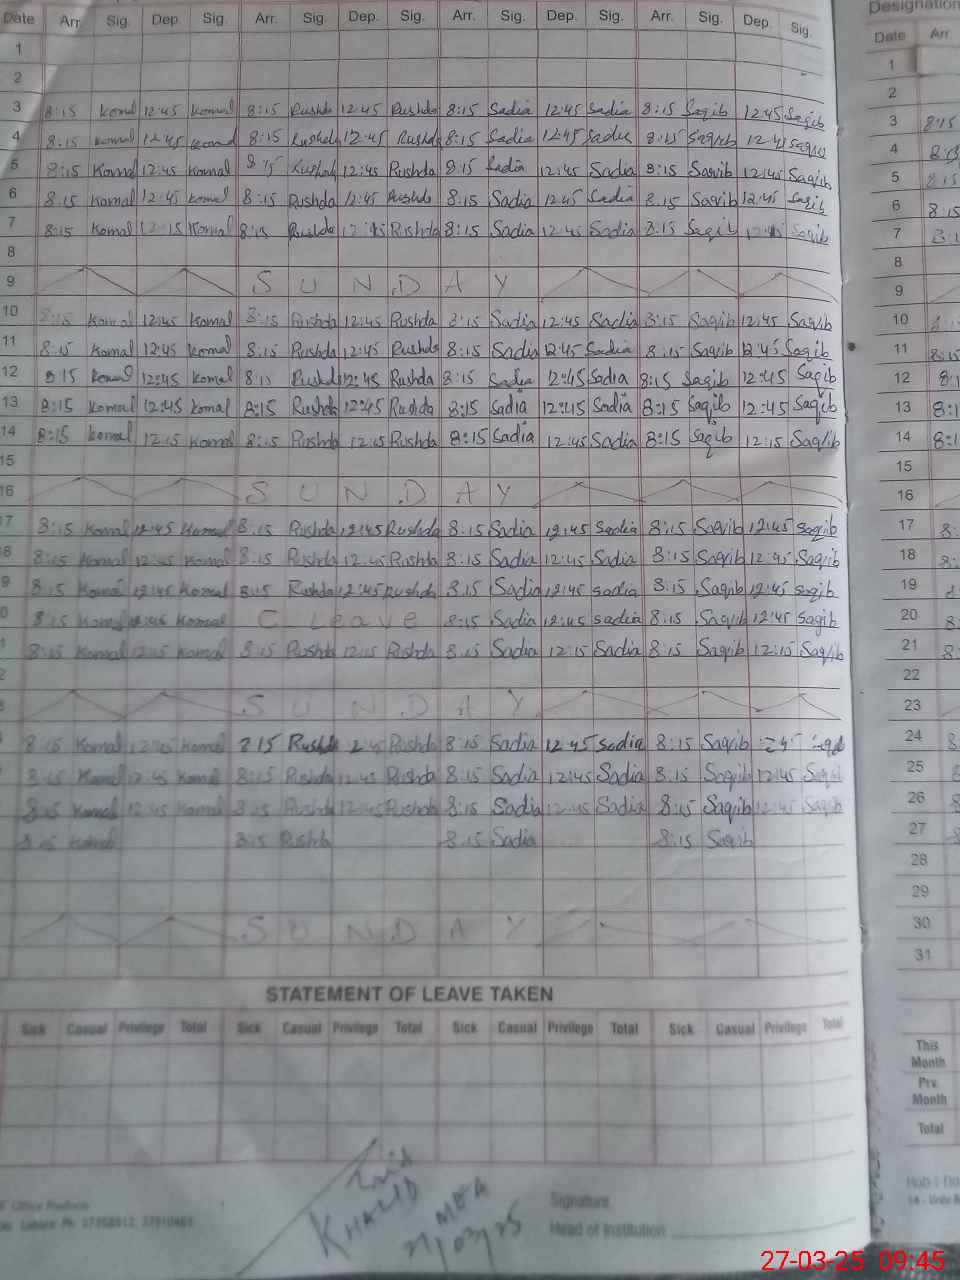 Date Arr. Sig. Dep. Sig. Arr. Sig. Dep. Sig. Arr. Sig. Dep. Sig. Arr. Sig. Dep. Sig.
1
2
3 8:15 Komal 12:45 Komal 8:15 Rushda 12:45 Rushda 8:15 Sadia 12:45 Sadia 8:15 Saqib 12:45 Saqib
4 8:15 Komal 12:45 Komal 8:15 Rushda 12:45 Rushda 8:15 Sadia 12:45 Sadia 8:15 Saqib 12:45 Saqib
5 8:15 Komal 12:45 Komal 8:15 Rushda 12:45 Rushda 8:15 Sadia 12:45 Sadia 8:15 Saqib 12:45 Saqib
6 8:15 Komal 12:45 Komal 8:15 Rushda 12:45 Rushda 8:15 Sadia 12:45 Sadia 8:15 Saqib 12:45 Saqib
7 8:15 Komal 12:15 Komal 8:15 Rushda Rushda 8:15 Sadia 12:45 Sadia 8:15 Saqib Saqib
8
9 SUNDAY
10 8:15 Komal 12:45 Komal 8:15 Rushda 12:45 Rushda 8:15 Sadia 12:45 Sadia 8:15 Saqib 12:45 Saqib
11 8:15 Komal 12:45 Komal 8:15 Rushda 12:45 Rushda 8:15 Sadia 12:45 Sadia 8:15 Saqib 12:45 Saqib
12 8:15 Komal 12:45 Komal 8:15 Rushda 12:45 Rushda 8:15 Sadia 12:45 Sadia 8:15 Saqib 12:45 Saqib
13 8:15 Komal 12:45 Komal 8:15 Rushda 12:45 Rushda 8:15 Sadia 12:45 Sadia 8:15 Saqib 12:45 Saqib
14 8:15 Komal 12:15 Komal 8:15 Rushda 12:15 Rushda 8:15 Sadia 12:45 Sadia 8:15 Saqib 12:15 Saqib
15
16 SUNDAY
17 8:15 Komal 12:45 Komal 8:15 Rushda 12:45 Rushda 8:15 Sadia 12:45 Sadia 8:15 Saqib 12:45 Saqib
8 8:15 Komal 12:45 Komal 8:15 Rushda 12:45 Rushda 8:15 Sadia 12:45 Sadia 8:15 Saqib 12:45 Saqib
9 8:15 Komal 12:45 Komal 8:15 Rushda 12:45 Rushda 8:15 Sadia 12:45 Sadia 8:15 Saqib 12:45 Saqib
0 8:15 Komal 12:45 Komal C Leave 8:15 Sadia 12:45 Sadia 8:15 Saqib 12:45 Saqib
1 8:15 Komal 12:15 Komal 8:15 Rushda 12:15 Rushda 8:15 Sadia 12:15 Sadia 8:15 Saqib 12:15 Saqib
2
3 SUNDAY
8:15 Komal 12:45 Komal 8:15 Rushda 12:45 Rushda 8:15 Sadia 12:45 Sadia 8:15 Saqib
8:15 Komal 12:45 Komal 8:15 Rushda 12:45 Rushda 8:15 Sadia 12:45 Sadia 8:15 Saqib 12:45 Saqib
8:15 Komal 12:45 Komal 8:15 Rushda 12:45 Rushda 8:15 Sadia 12:45 Sadia 8:15 Saqib 12:45 Saqib
8:15 Komal 8:15 Rushda 8:15 Sadia 8:15 Saqib
SUNDAY
STATEMENT OF LEAVE TAKEN
Sick Casual Privilege Total Sick Casual Privilege Total Sick Casual Privilege Total Sick Casual Privilege Total
KHALID
MEA
27/03/25
Office Products
Lahore Ph:
Signature
Head of Institution
Designation
Date Arr.
1
2
3 8:15
4
5 8:15
6 8:15
7
8
9
10
11 8:15
12
13
14
15
16
17
18
19
20
21
22
23
24
25
26
27
28
29
30
31
This Month
Prv. Month
Total
27-03-25 09:45